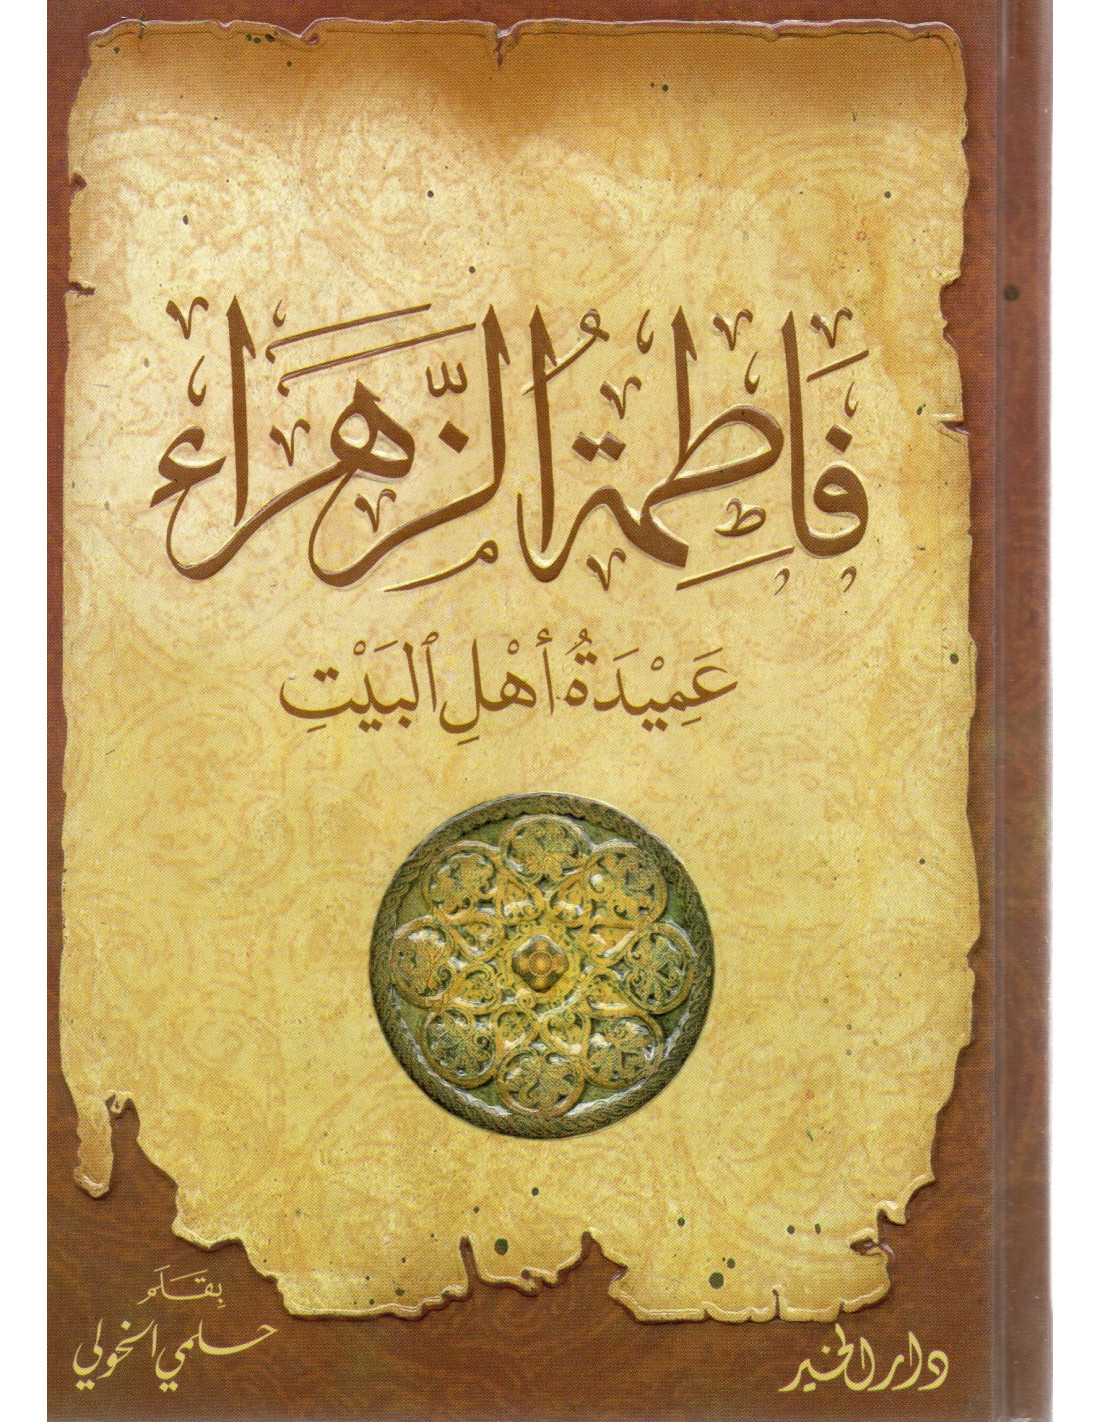 فَاطِمَةُ الزَّهَرَاء
عَمِيْدَةُ أهْلِ البَيْتِ
بِقَلَم
حلمي الخولي
دار الخير